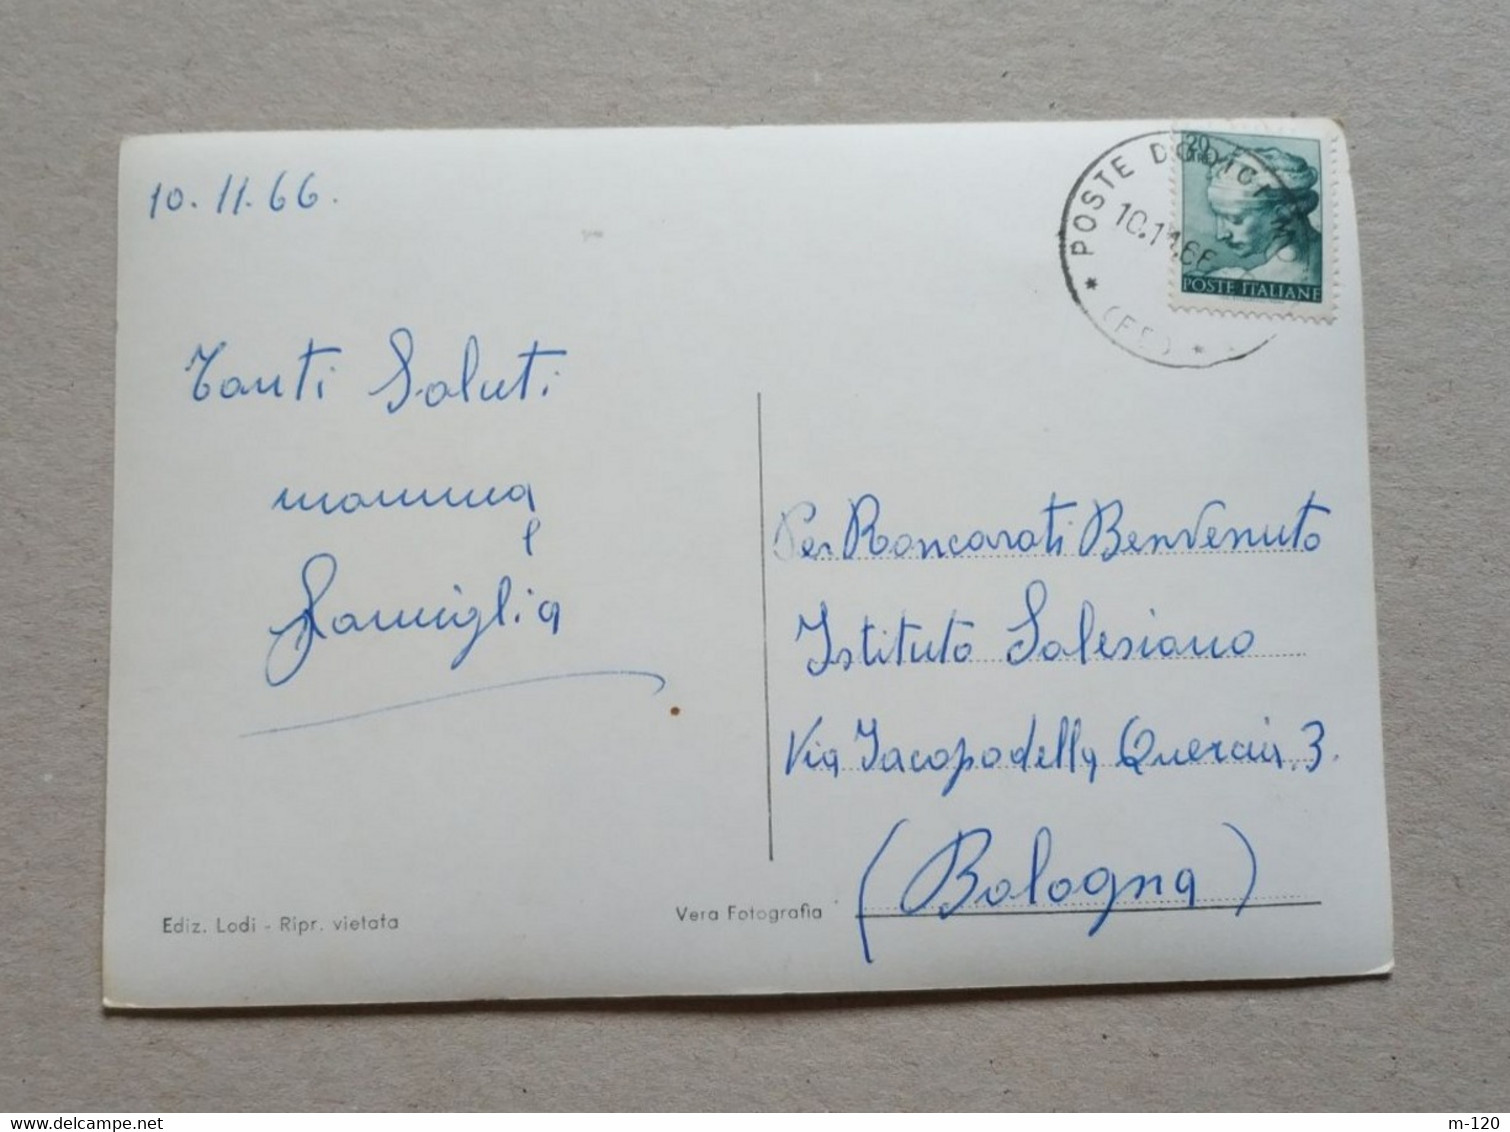 10.11.66.
POSTE DODICI MO
10.11.66
(FE)
20
POSTE ITALIANE
Tanti Saluti
mamma
e
Famiglia
Per Roncarati Benvenuto
Istituto Salesiano
Via Jacopo della Quercia. 3.
(Bologna)
Ediz. Lodi - Ripr. vietata
Vera Fotografia
delcampe.net
m-120